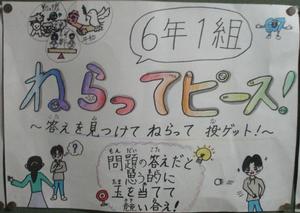 6年1組
ねらってピース!
～答えを見つけて ねらって 投ゲット!～
問題の答えだと
思う的に
玉を当てて
競い合え!